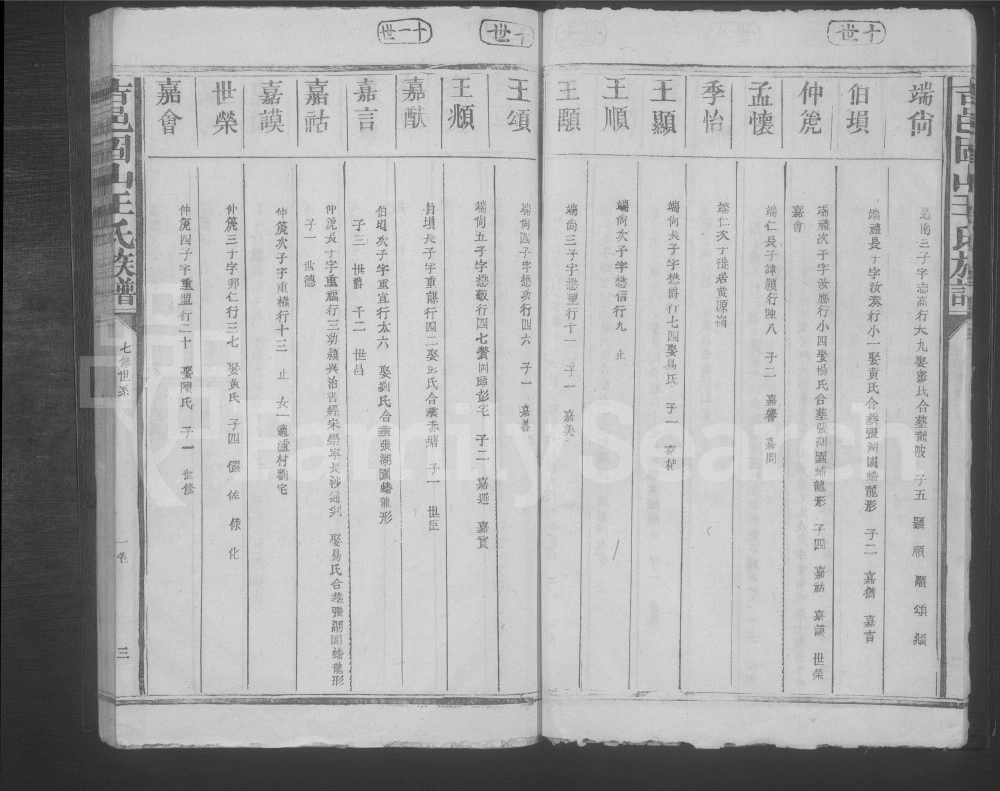 十世
端尙
子五 顯 順 願 頌 頫
伯塤
端禮長子字汝奏行小一娶黃氏合葬張湖園蟠龍形 子二 嘉猷 嘉言
仲箎
端禮次子字汝 行小四娶楊氏合葬張湖園蟠龍形 子四 嘉祜 嘉謨 世榮
嘉會
孟懷
端仁長子諫 行陳八 子二 嘉譽 嘉問
季怡
端仁次子徙居黃源
王顯
端尙長子字懋爵行七四娶易氏 子一
王順
端尙次子字懋信行九 止
王願
端尙三子字懋 行十一 子一 嘉美
十世
王頌
端尙四子字懋功行四六 子一 嘉善
王頫
端尙五子字懋敬行四七贅 頭彭宅 子二 嘉 嘉賓
十一世
嘉猷
伯塤長子字重謀行四二娶彭氏合葬赤塘 子一 世臣
嘉言
伯塤次子字重宣行太六 娶劉氏合葬張湖園蟠龍形
子三 世爵 千二 世昌
嘉祜
仲箎長子字重福行三幼穎與治書經宋 寧長沙通判 娶易氏合葬張湖園蟠龍形
子一 世德
嘉謨
仲箎次子字重 行十三 止 女一 村劉宅
世榮
仲箎三子字邦仁行三七 娶黃氏 子四 儼 佐 俅 化
嘉會
仲箎四子字重盟行二十 娶陳氏 子一 世修
吉邑固山王氏族譜
七修世系
一卷
三
FamilySearch